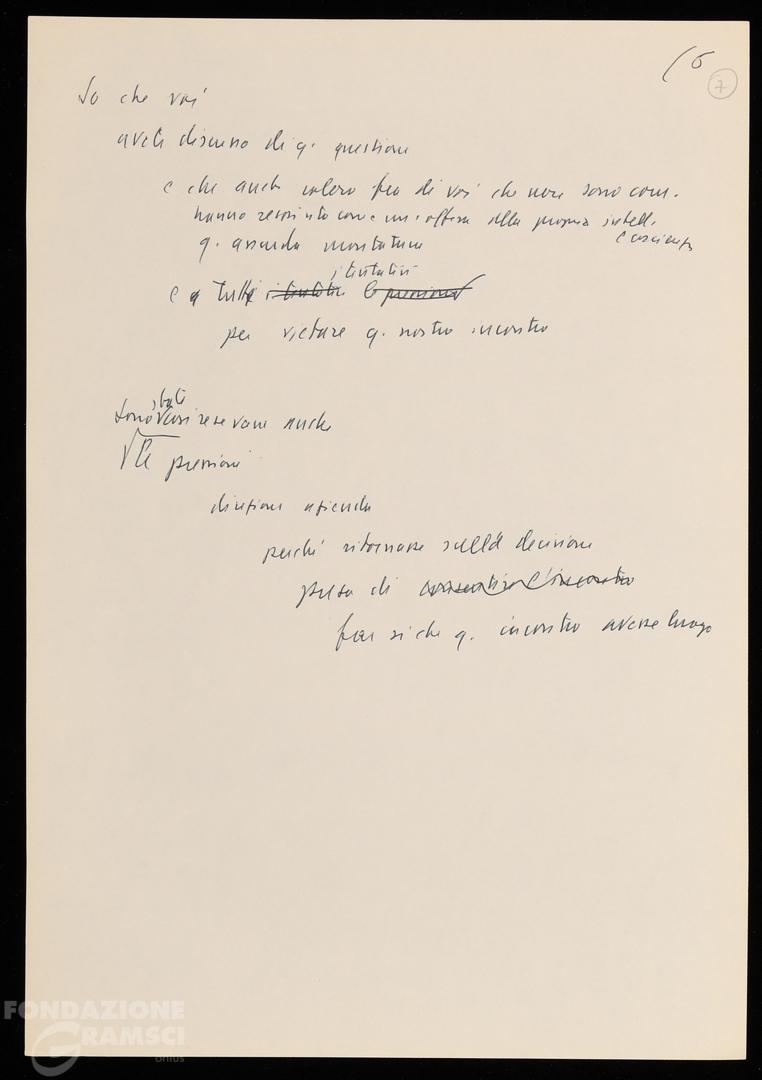 (6
7
So che voi
avete discusso di q. questione
e che anche coloro fra di voi che non sono com.
hanno resp into come un'offesa alla propria intell.
e coscienza
q. assurda montatura
i tentativi
e a tutti i tentativi le pressioni
per vietare q. nostro incontro
state
Sono anche
le pressioni
direzione azienda
perché ritornasse sulla decisione
presa di consentire l'incontro
far sì che q. incontro avesse luogo
FONDAZIONE
GRAMSCI
onlus